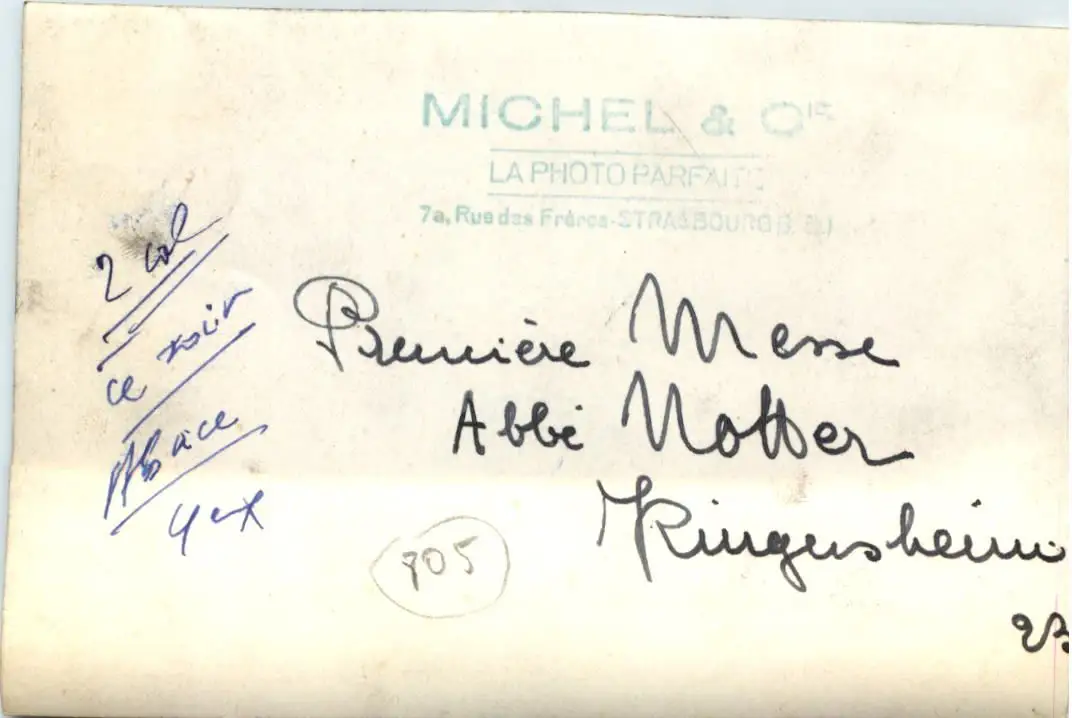 MICHEL & Cie
LA PHOTO PARFAITE
7a, Rue des Frères-STRASBOURG
2 col
ce soir
Première Messe
Abbé Notter
Kingersheim
905
23